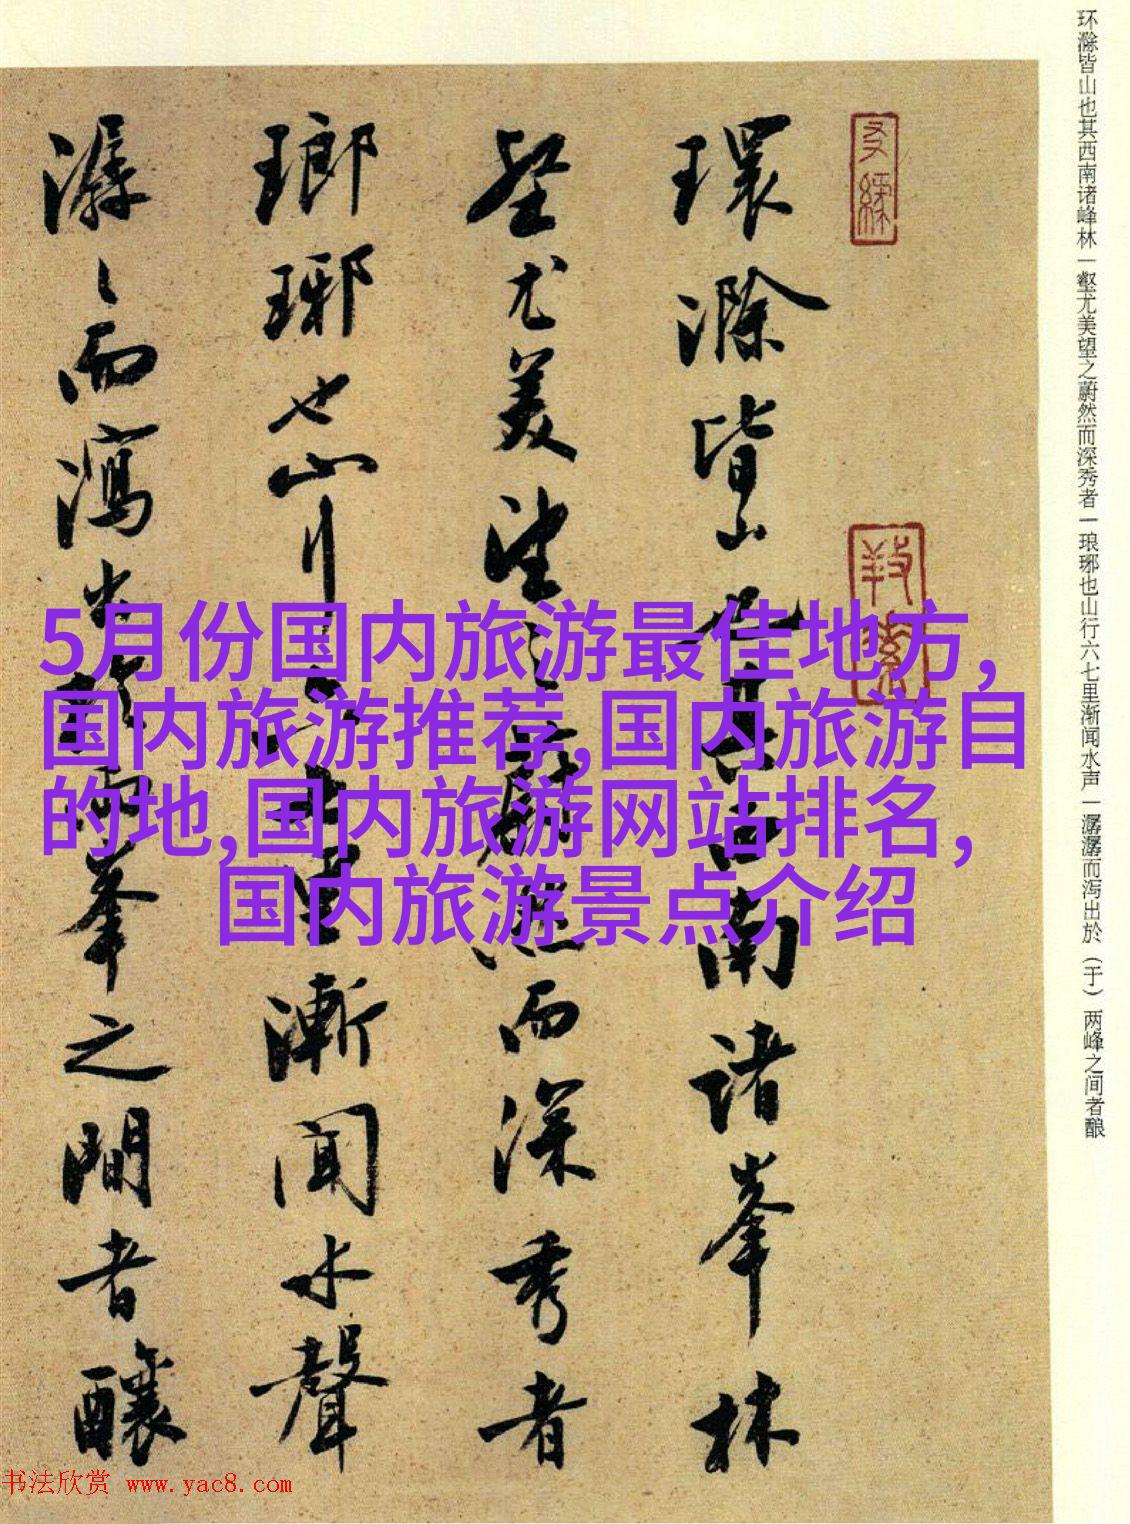 环滁皆山也其西南诸峰林一壑尤美望之蔚然而深秀者一琅琊也山行六七里渐闻水声一潺潺而泻出於（于）两峰之间者酿
環滁皆山也其西南諸峯林
壑尤美望之蔚然而深秀者
瑯琊也山行六七里漸聞水聲
潺〻而瀉出於兩峯之間者釀
5月份国内旅游最佳地方,
国内旅游推荐,国内旅游目
的地,国内旅游网站排名,
国内旅游景点介绍
书法欣赏 www.yac8.com